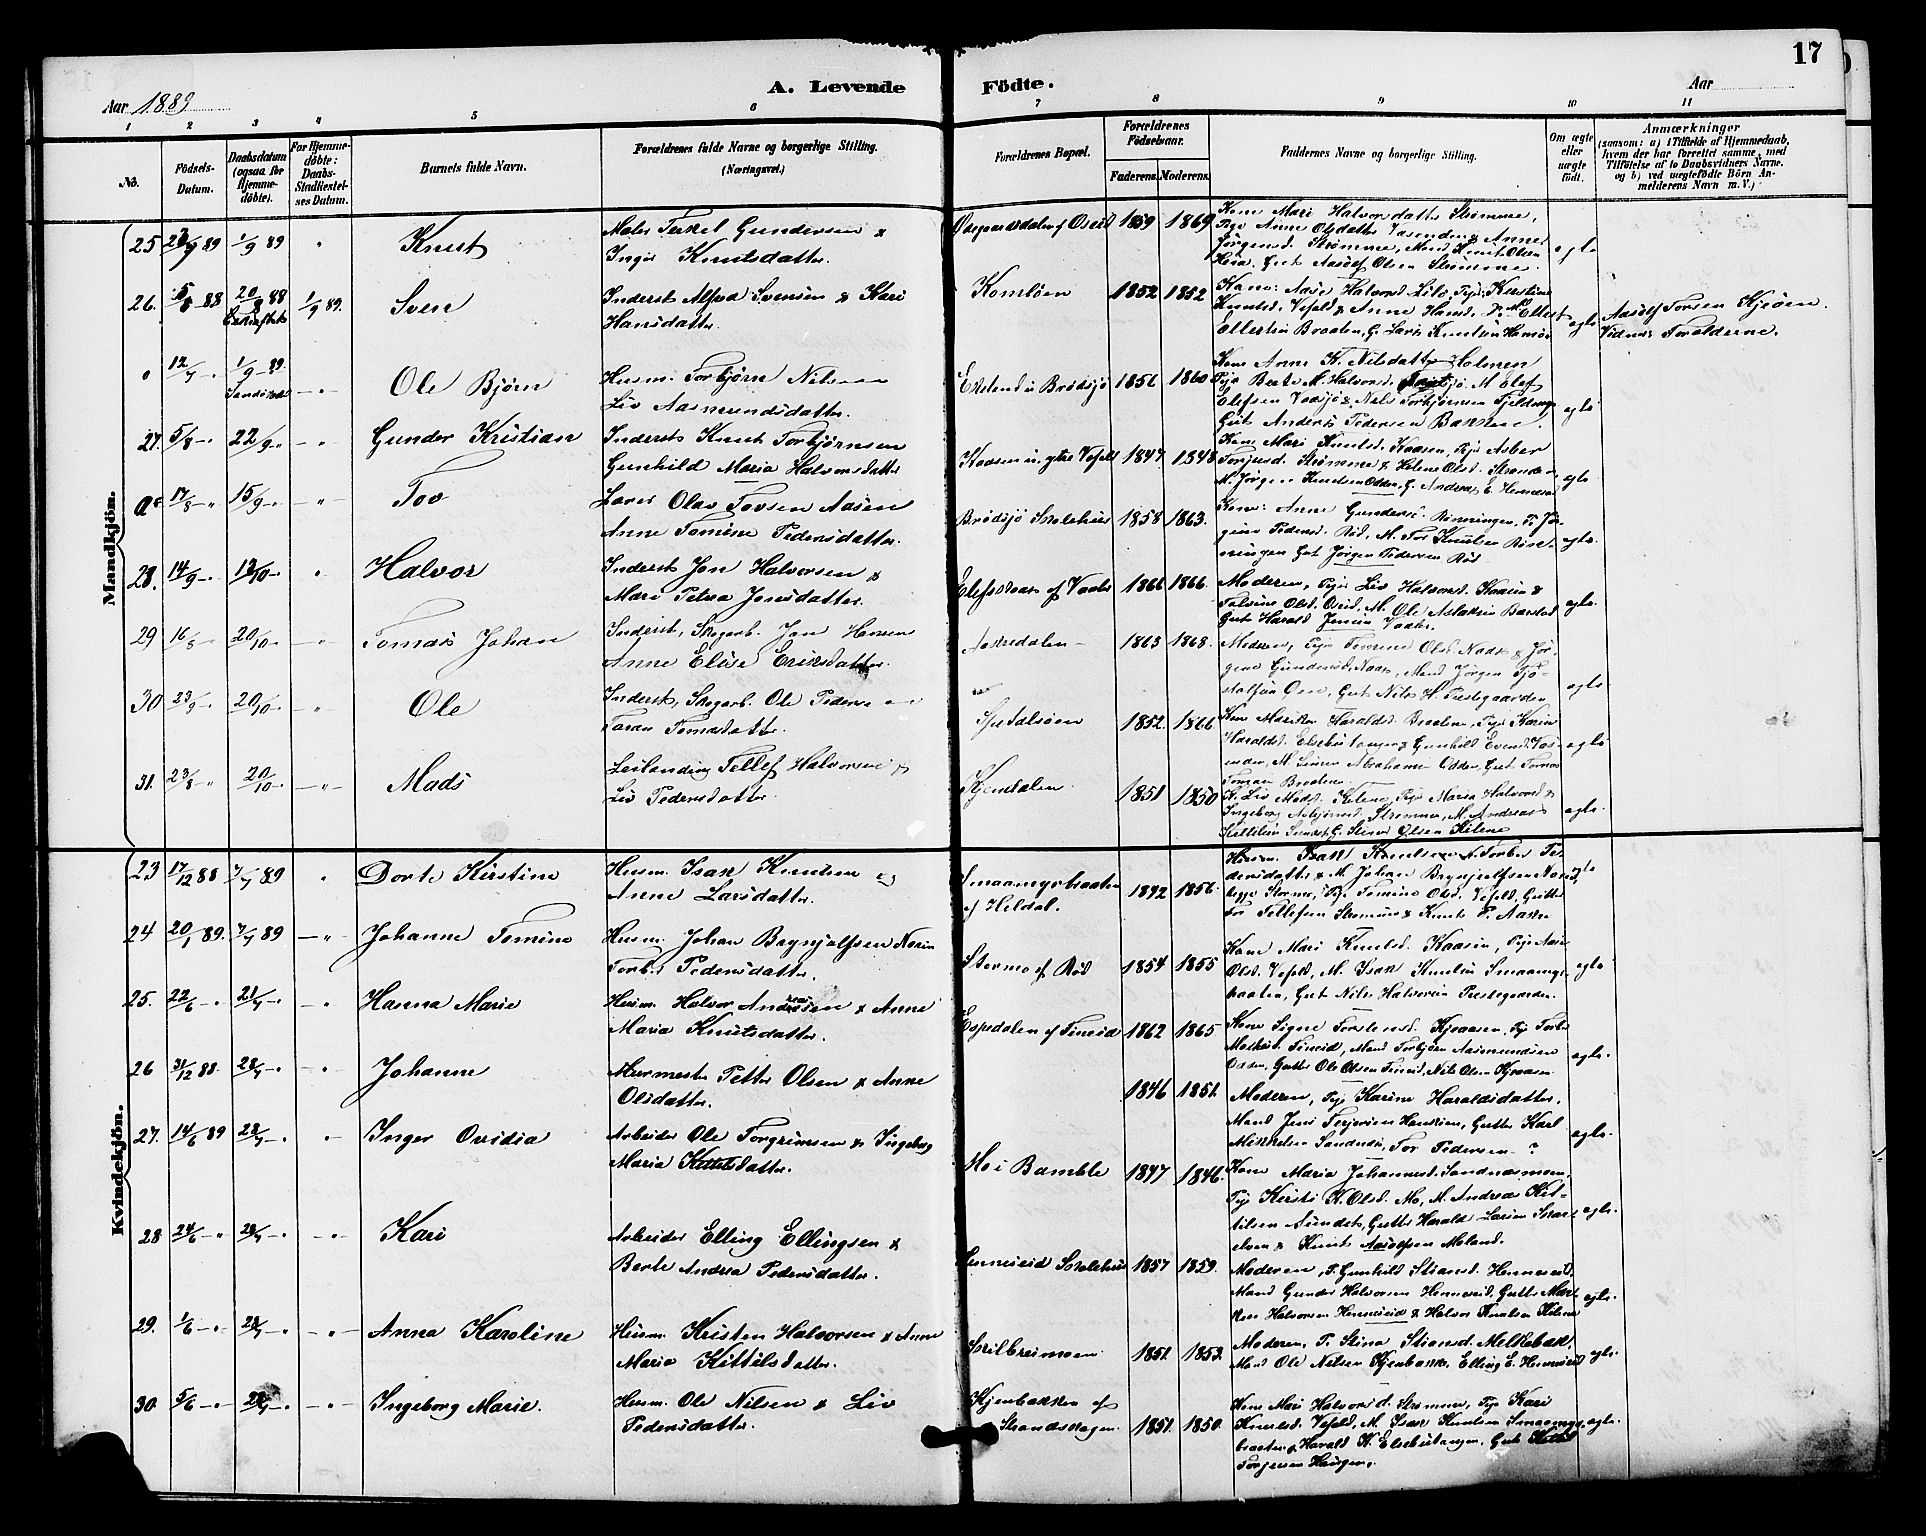 17
A. Levende Födte.
Aar 1889
Aar
1 2 3 4 5 6 7 8 9 10 11
No.
Födsels-Datum.
Daabsdatum (ogsaa for Hjemme-döbte).
For Hjemme-döbte: Daabs-Stadfæstel-ses Datum.
Barnets fulde Navn.
Forældrenes fulde Navne og borgerlige Stilling. (Næringsvei.)
Forældrenes Bopæl.
Forældrenes Födselsaar.
Faderens. Moderens.
Faddernes Navne og borgerlige Stilling.
Om ægte eller uægte födt.
Anmærkninger
(saasom: a) i Tilfælde af Hjemmedaab, hvem der har forrettet samme, med Tilföielse af to Daabsvidners Navne, og b) ved uægtefödte Börn An-melderens Navn m. V.)
Mandkjön.
25 89 1/9 89 " Knut
Maler Terkel Gundersen &
Inger Knutsdatter.
1859 1869
Kone Mari Halvorsdatter Strömme,
Pige Anne Olsdatter
Strömme, Mand Knut Olsen
Gut Aasolf Olsen Strömme.
ægte
26. 5/8 88 20/8 88 1/9 89. Sven
Inderst Alfred Svensen & Kari
Hansdatter.
1852 1852
Kone: Aase Halvorsd. Lilö, Pige: Kirstine
Knutsd. Vefald & Anne Hansd.
Braaten, G. Lars Knutsen
ægte
Aasolf Torsen Kjöien.
Vidner: Forældrene.
" 12/7 " 1/9 89 " Ole Björn
Husm. Torbjörn Nilsen
Liv Aasmundsdatter.
Brödsjö 1851 1860
Kone Anne K. Nilsdatter Holmen
Pige Berte M. Halvorsd.
Olefsen Vadsjö & Nils Torbjörnsen
Gut Anders Pedersen Bakken.
ægte
27. 5/8 " 22/9 " " Gunder Kristian
Inderst Knut Torbjörnsen
Gunhild Maria Halvorsdatter
Kaasen u. ytre Vefald 1847 1848
Kone Mari Knutsd. Kaasen, Pige Asber
Torjusd. Strömme & Helene Olsd. Stranden
M. Jörgen Knudsen Odden, G. Andreas E.
ægte
17/8 " 15/9 " " Tov
Lærer Olav Tovsen Aasen
Anne Tomine Pedersdatter.
Brödsjö Skolehus 1858 1863.
Kone: Anne Gundersd. Rönningen, P. Jör-
gine Pedersd. Röd, M. Tor Knutsen Rön-
ningen Gut Jörgen Pedersen Röd
ægte.
28. 14/9 " 13/10 " " Halvor
Inderst Jon Halvorsen &
Mari Petrea Jonsdatter.
1866 1866.
Moderen, Pige Liv Halvorsd. Kaasen &
Olsd. M. Ole Aslaksen
Gut Harald Jensen
ægte.
29 16/8 " 20/10 " " Tomas Johan
Inderst, Skogarb. Jon Hansen
Anne Elise Eriksdatter.
1863 1868.
Moderen, Pige Tomine Olsd. Naas & Jör-
gine Gundersd. Naas, Mand Jörgen Tjö-
stolfsen Gut Nils H. Prestegaarden
ægte
30 23/9 " 20/10 " " Ole
Inderst, Skogarb. Ole Pedersen
Taran Tomasdatter.
Spedalsöen 1852. 1866
Kone Mariken Haraldsd. Braatene, Pige Karin
Haraldsd. & Gunhild Evensd.
M. Simen Abrahamsen Odden, Gut Tomas
Tomasen Braatene.
ægte
31. 23/8 " 20/10 " " Mads
Leilending Tellef Halvorsen &
Liv Pedersdatter.
Kjendalen. 1851 1850
K. Liv Madsd. Kilene, Pige Maria Halvorsd. &
Ingeborg Asbjörnsd. Strömme, M. Andreas
Kittilsen Sundet, G. Steinar Olsen Kilene
ægte.
Kvindekjön.
23 17/12 88 7/7 89 " Dorte Kirstine
Husm. Isak Knutsen og
Anne Larsdatter.
af Heldal. 1856.
Husm. Isak Knutsen & Torber Pe-
dersdatter & M. Johan Brynjulfsen
Stermo, Pige Tomine Olsd. Vefald, Gutter
Tor Tellefsen Strömme & Knut P. Aasen
24 20/1 89. 7/7 89 " Johanne Tomine
Husm. Johan Brynjolfsen
Torber Pedersdatter.
Stermo af Röd 1854 1855
Kone Mari Knutsd. Kaasen, Pige Aase
Olsd. Vefald, M. Isak Knutsen Smaamyr-
braaten, Gut Nils Halvorsen Prestegaarden.
ægte
25. 22/6 " 21/7 " " Hanna Marie
Husm. Halvor Andreasen & Anne
Maria Knutsdatter.
Espedalen af Fineid 1862 1865
Kone Signe Torstensd. Kjeaasen, Pige Torbor
Fineid, Mand Torbjörn Aasmundsen
Odden, Gutter Ole Olsen Fineid, Nils Olsen Kjeaasen
ægte.
26 31/12 88. 28/7 " " Johanne
Murmester Petter Olsen & Anne
Olsdatter.
1846 1851.
Moderen, Pige Karine Haraldsdatter,
Mand Jens Terjesen Hansen, Gutter Karl
Mikkelsen Sandnes, Tor Pedersen ?
ægte.
27. 14/6 89 28/7 " " Inger Ovidia
Arbeider Ole Torgrimsen & Ingeborg
Maria Kittilsdatter.
Mo i Bamble 1847 1846.
Kone Maria Johannesd. Sandnesmoen,
Pige Kirsti K. Olsd. Mo, M. Andreas Kit-
tilsen Sundet, Gutter Harald Larsen
& Knut Aasolfsen Moland.
ægte.
28 24/6 " 28/7 " " Kari
Arbeider Elling Ellingsen &
Berte Andrea Pedersdatter.
Henneseid Skolehus 1857 1859.
Moderen, P. Gunhild Stiansd. Henneseid,
Mand Gunder Halvorsen Henneseid, Gutter Mar-
kus Halvorsen Henneseid & Halvor Knutsen Kilene
ægte.
29. 1/6 " 28/7 " " Anna Karoline
Husm. Kristen Halvorsen & Anne
Maria Kittilsdatter.
Skilbreimoen. 1851. 1853.
Moderen, P. Stina Stiansd. Melkebæk,
Mand Ole Nilsen Kjenbakk, Elling E. Henneseid
ægte.
30. 5/6 " 28/7 " " Ingeborg Marie.
Husm. Ole Nilsen & Liv
Pedersdatter.
Kjenbakken af
Strandskogen. 1851. 1850.
Kone Mari Halvorsd. Strömme, Pige Kari
Knutsd. Vefald, M. Isak Knutsen Smaamyr-
braaten & Harald K. Gut Kittil
Torjersen Haugen.
ægte.